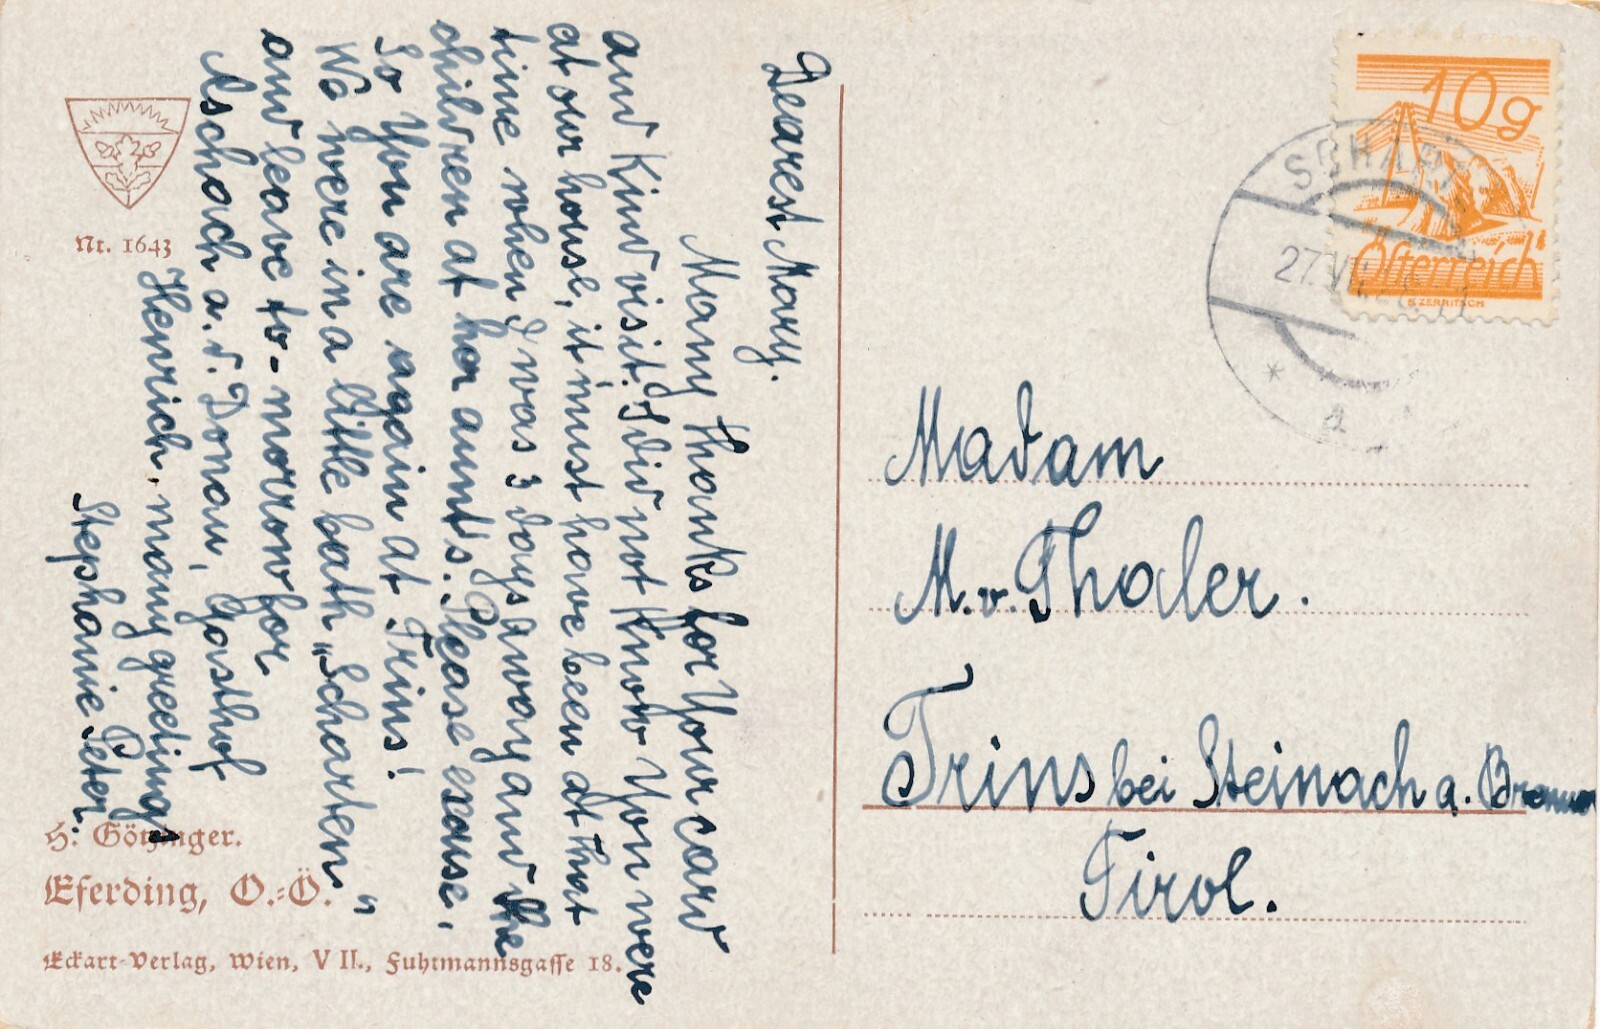 Dearest Mary.
Many thanks for Your card
and kind visit. I did not know You were
at our house, it must have been at that
time when I was 3 days away and the
children at her aunt's. Please excuse,
So You are again at Trins!
We were in a little bath „Scharten"
and leave to-morrow for
Aschach a. d. Donau, Gasthof
Henrich. many greetings
Stephanie Peter.
Nr. 1643
H: Götzinger.
Eferding, O.=Ö.
Eckart-Verlag, Wien, VII., Fuhrmannsgasse 18.
10g
Österreich
27.VII.
a
Madam
M. v. Thaler.
Trins bei Steinach a. Brenner
Tirol.